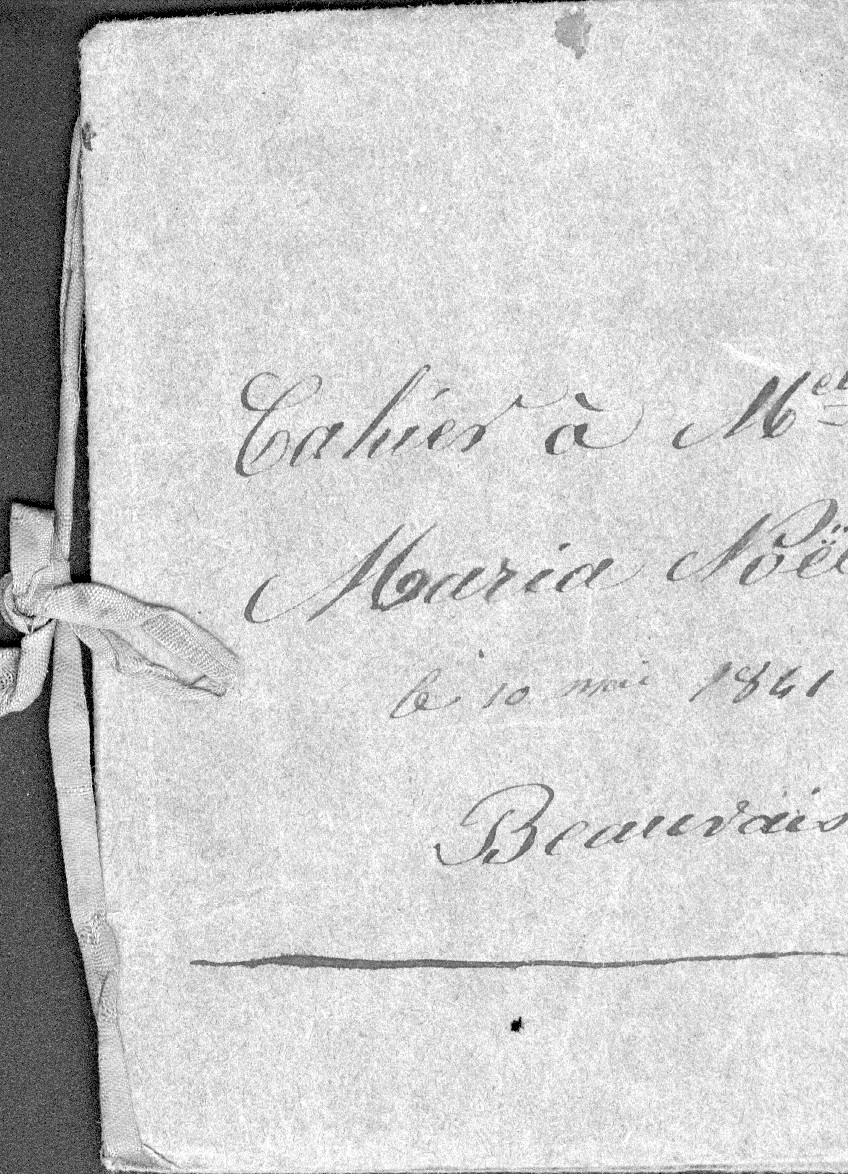 Cahier à Mel
Maria Noë
le 10 mai 1841
Beauvais